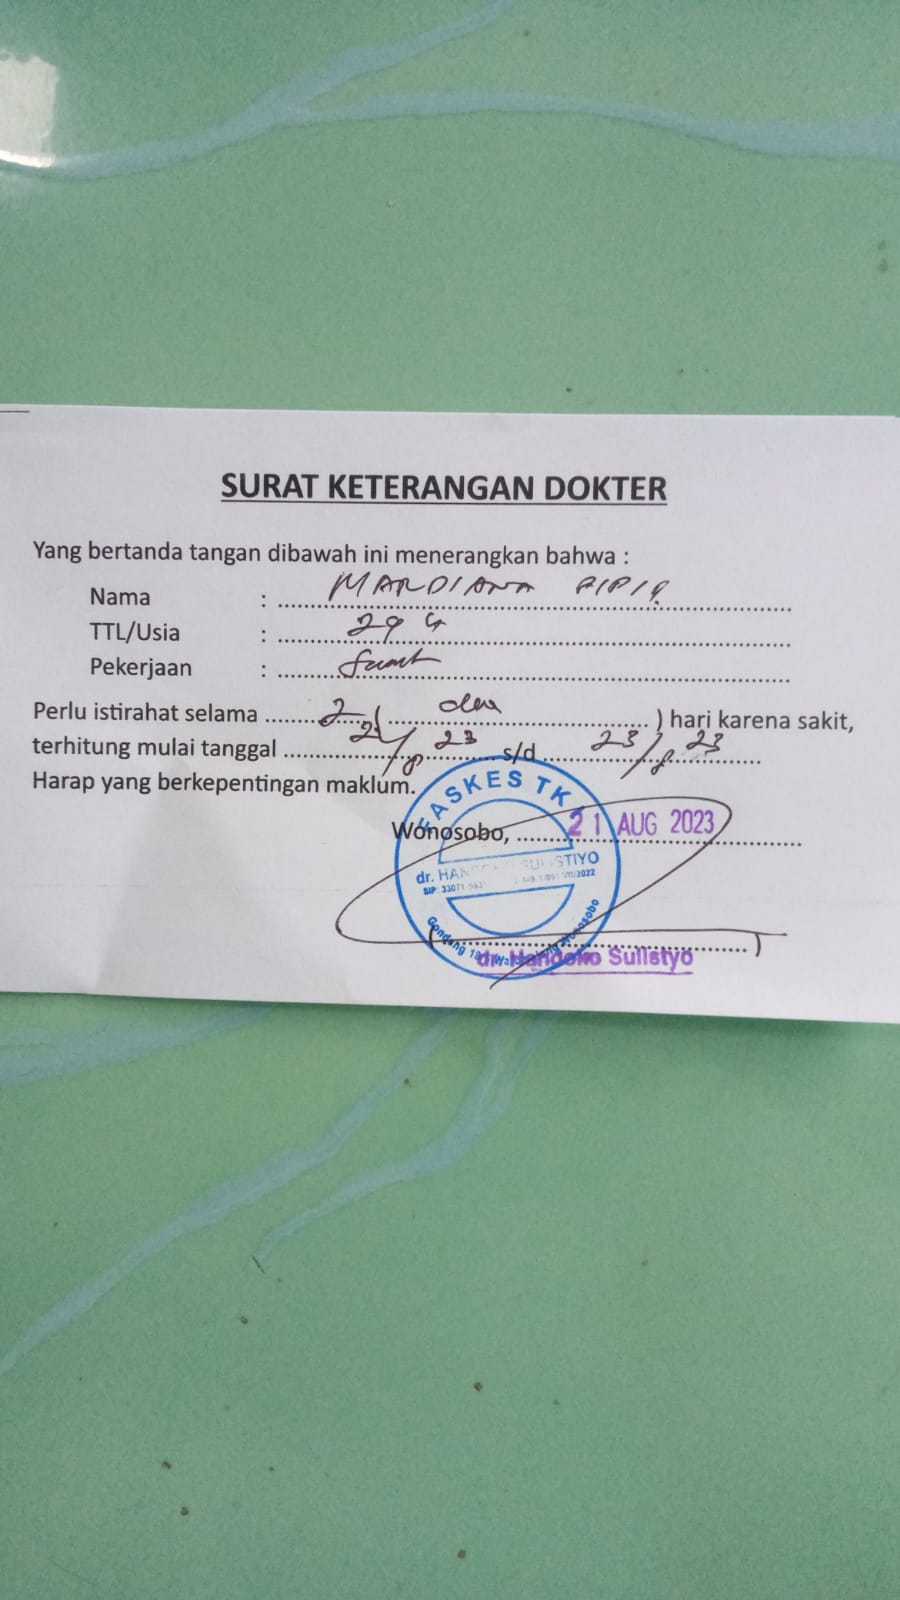 SURAT KETERANGAN DOKTER
Yang bertanda tangan dibawah ini menerangkan bahwa :
Nama : MARDIANA
TTL/Usia : 29
Pekerjaan :
Perlu istirahat selama 2 ( dua ) hari karena sakit,
terhitung mulai tanggal /8 23 s/d 23/8 23
Harap yang berkepentingan maklum.
FASKES TK
Wonosobo, 21 AUG 2023
dr. HAN SULISTIYO
SIP: 33071
2022
Gondang Wonosobo
( )
dr. Handoko Sulistyo